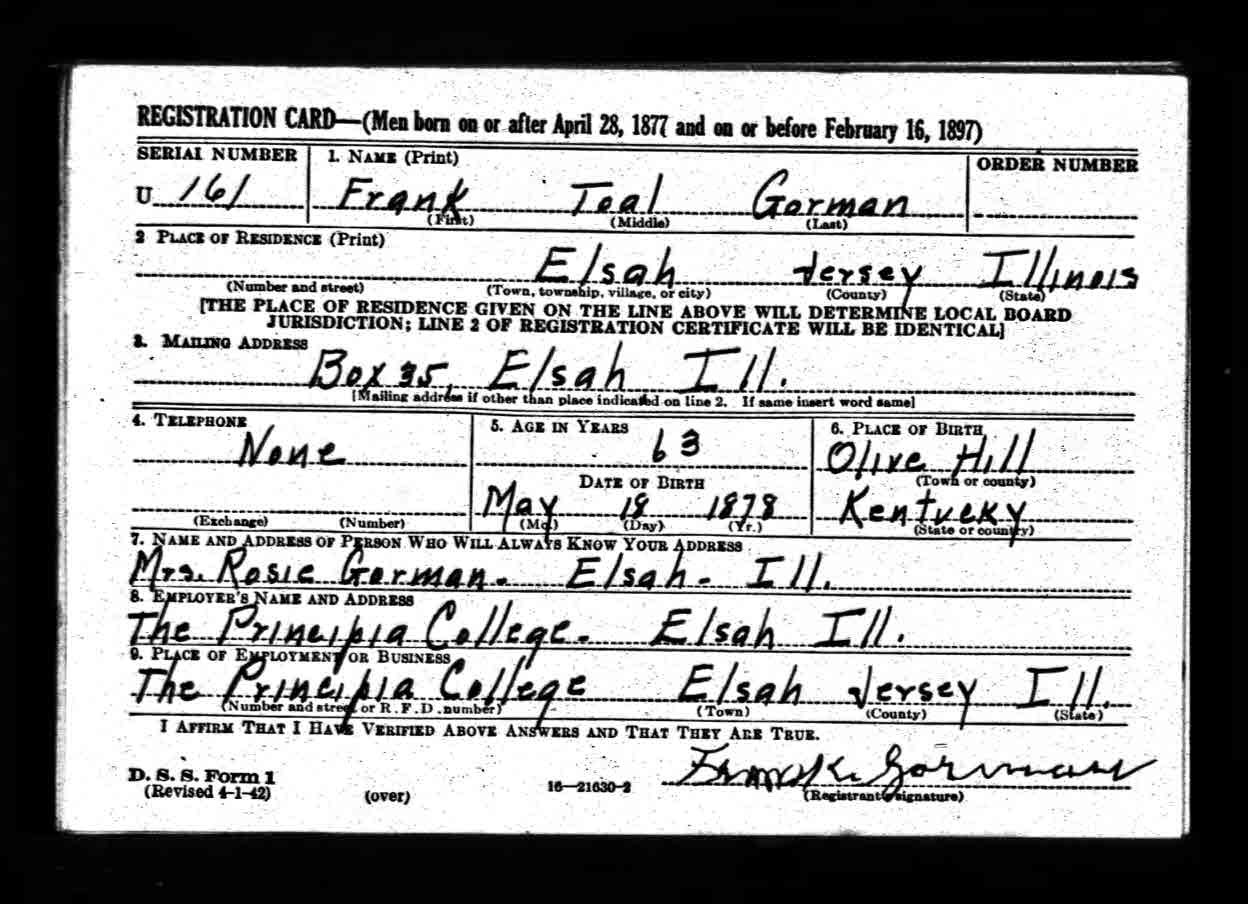 REGISTRATION CARD—(Men born on or after April 28, 1877 and on or before February 16, 1897)
SERIAL NUMBER 1. NAME (Print) ORDER NUMBER
U 161 Frank Teal Gorman
(First) (Middle) (Last)
2 PLACE OF RESIDENCE (Print)
Elsah Jersey Illinois
(Number and street) (Town, township, village, or city) (County) (State)
[THE PLACE OF RESIDENCE GIVEN ON THE LINE ABOVE WILL DETERMINE LOCAL BOARD
JURISDICTION; LINE 2 OF REGISTRATION CERTIFICATE WILL BE IDENTICAL]
3. MAILING ADDRESS
Box 35, Elsah Ill.
[Mailing address if other than place indicated on line 2. If same insert word same]
4. TELEPHONE 5. AGE IN YEARS 6. PLACE OF BIRTH
None 63 Olive Hill
(Town or county)
DATE OF BIRTH
May 18 1878 Kentucky
(Exchange) (Number) (Mo.) (Day) (Yr.) (State or country)
7. NAME AND ADDRESS OF PERSON WHO WILL ALWAYS KNOW YOUR ADDRESS
Mrs. Rosie Gorman- Elsah- Ill.
8. EMPLOYER'S NAME AND ADDRESS
The Principia College- Elsah Ill.
9. PLACE OF EMPLOYMENT OR BUSINESS
The Principia College Elsah Jersey Ill.
(Number and street or R. F. D. number) (Town) (County) (State)
I AFFIRM THAT I HAVE VERIFIED ABOVE ANSWERS AND THAT THEY ARE TRUE.
D. S. S. Form 1
(Revised 4-1-42) (over) 16—21630-2 Frank Gorman
(Registrant's signature)